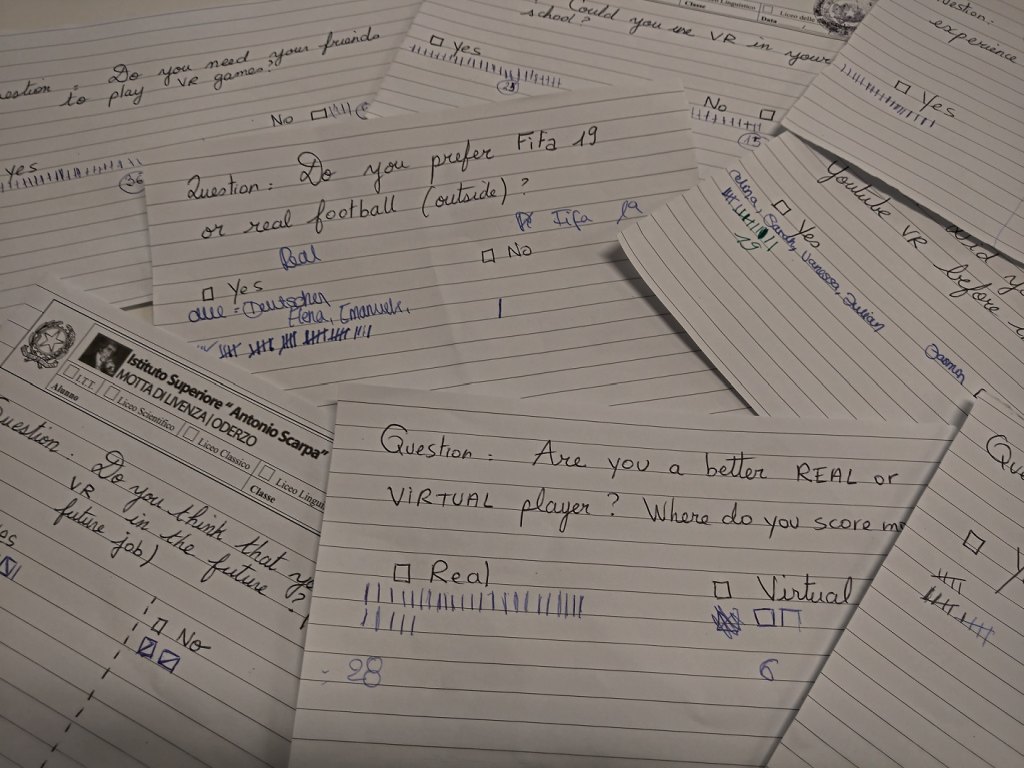 Do you need your friends
to play VR games?
No
yes
36
Could you use VR in your
school?
Yes
25
No
15
Classe
Data
experience
Yes
Question: Do you prefer Fifa 19
or real football (outside)?
Real
Fifa 19
Yes
No
alle = Deutschen
Elena, Emanuele,
Youtube VR
before
Yes
Sarah, Vanessa, Julian
19
Jasmin
Istituto Superiore "Antonio Scarpa"
MOTTA DI LIVENZA | ODERZO
I.T.T. Liceo Scientifico Liceo Classico Liceo Lingui
Alunno
Classe
Question: Do you think that
VR in the future?
future job)
No
Question: Are you a better REAL or
VIRTUAL player? Where do you score
Real
Virtual
28
6